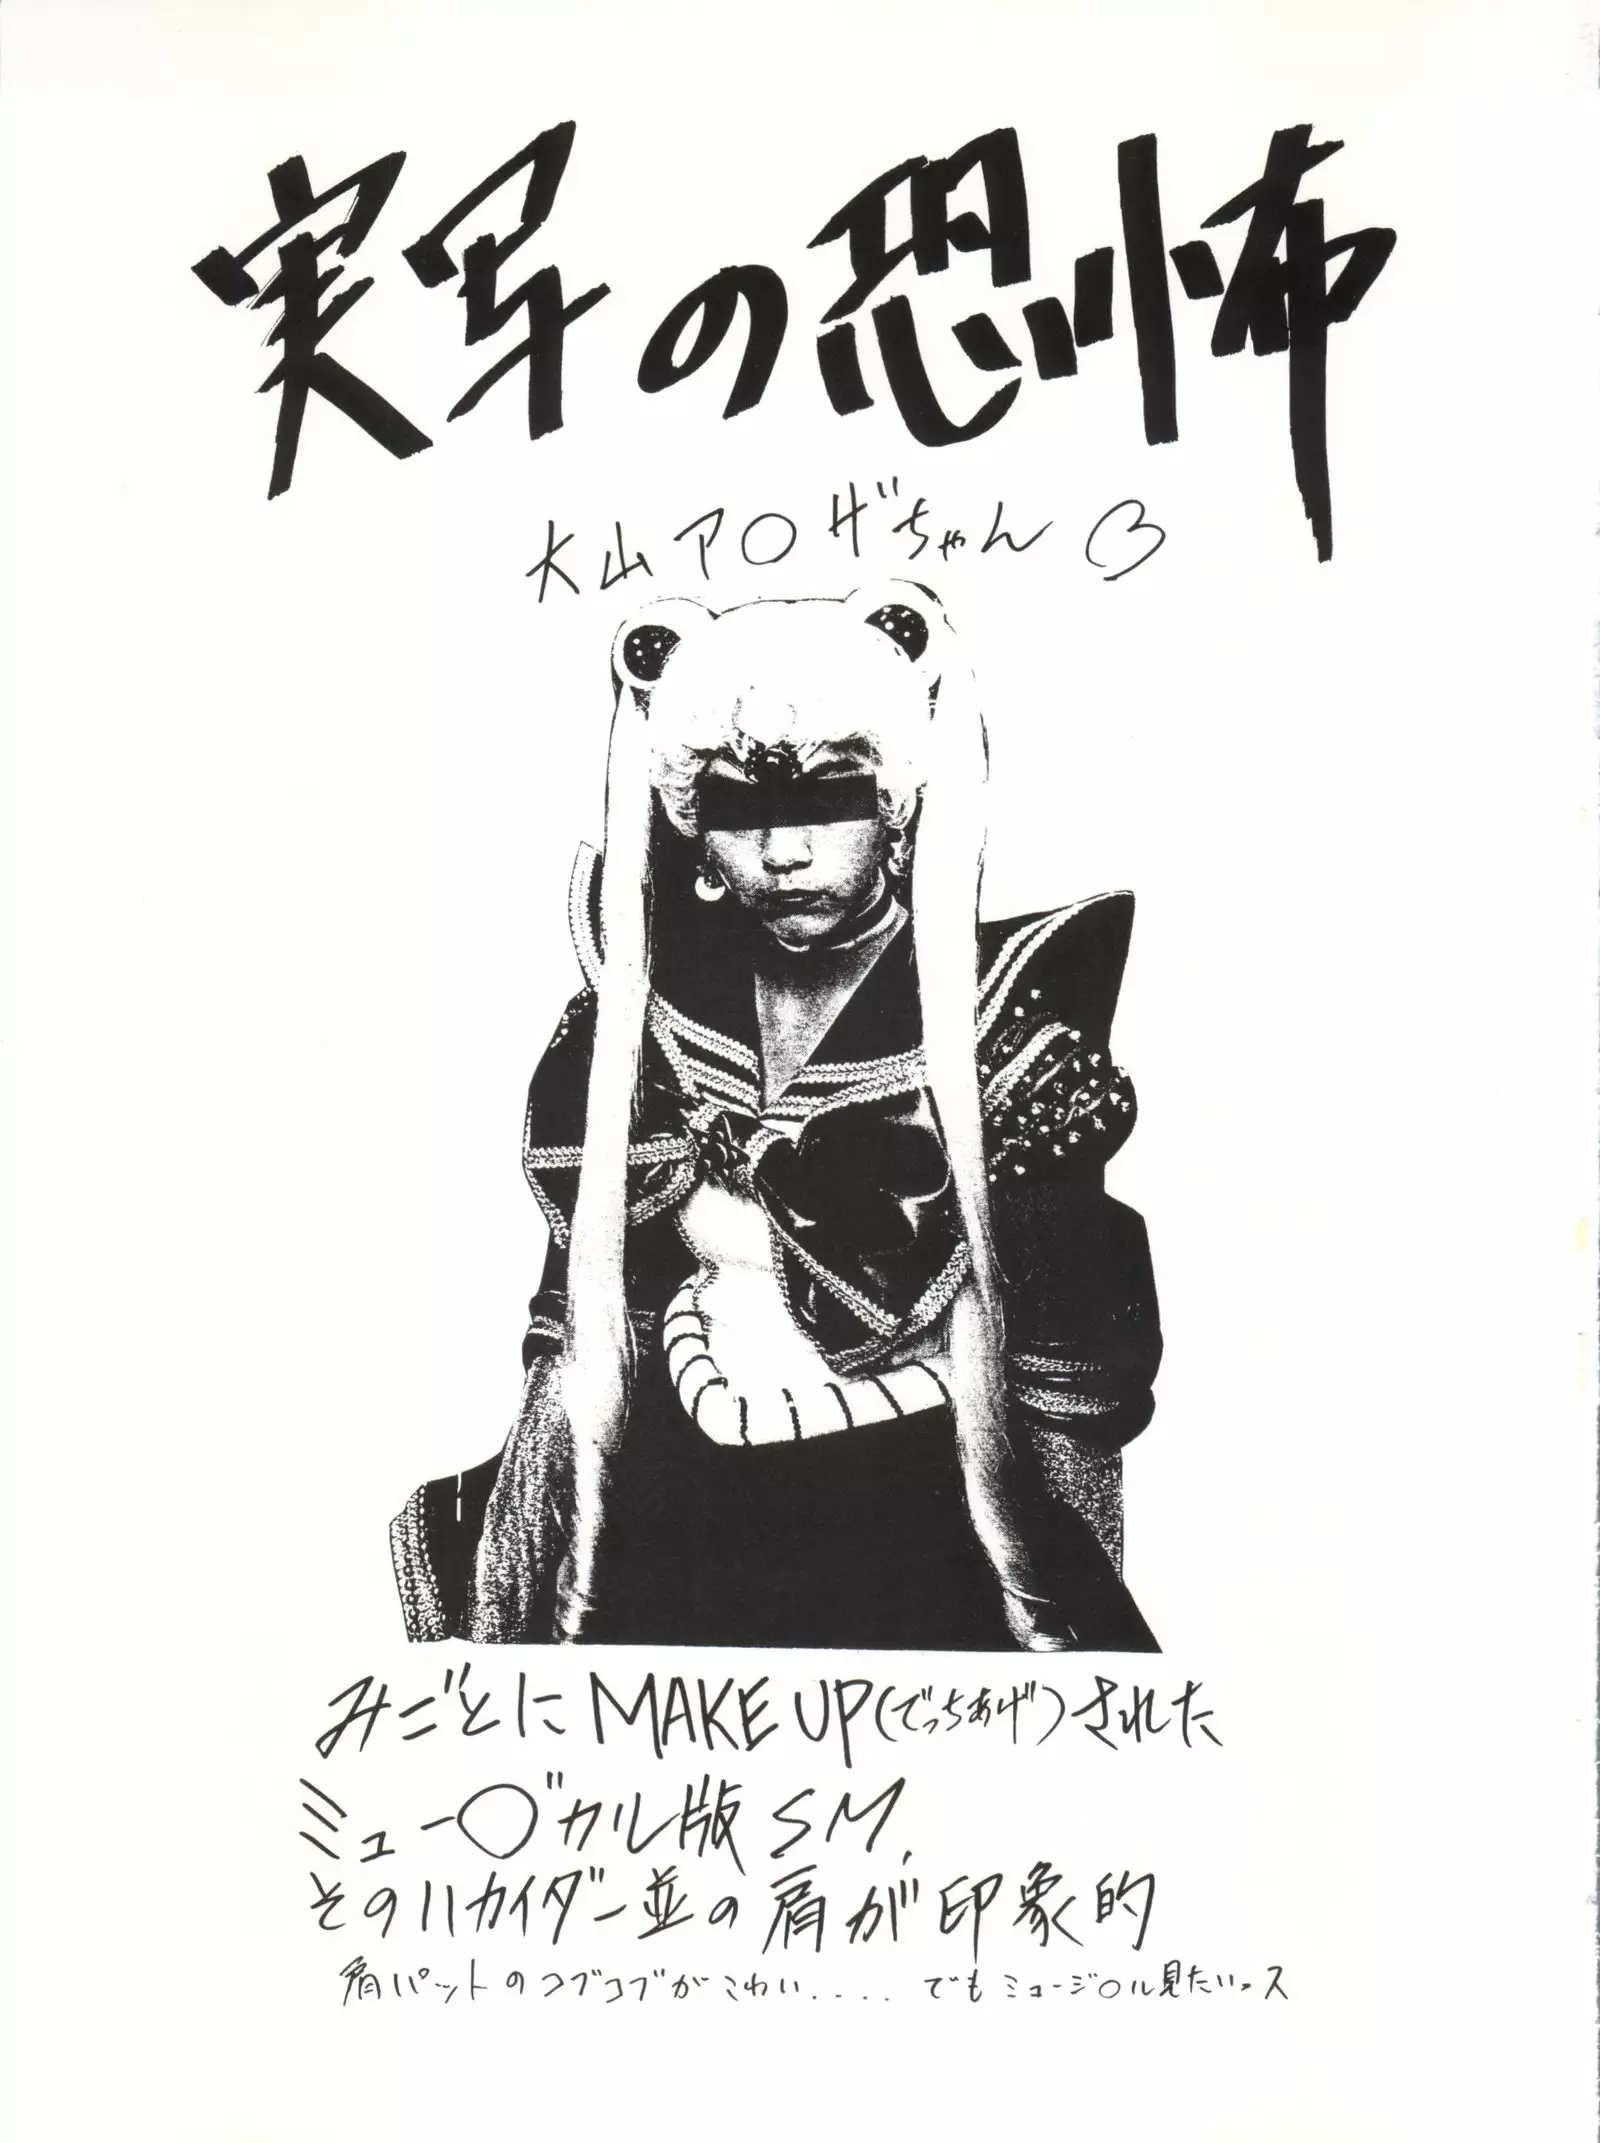 実写の恐怖
大山ア○ザちゃん
みごとにMAKE UP(でっちあげ)された
ミュー○゛カル版SM.
そのハカイダー並の肩が印象的
肩パットのコブコブがこわい....でもミュージ○ル見たいっス